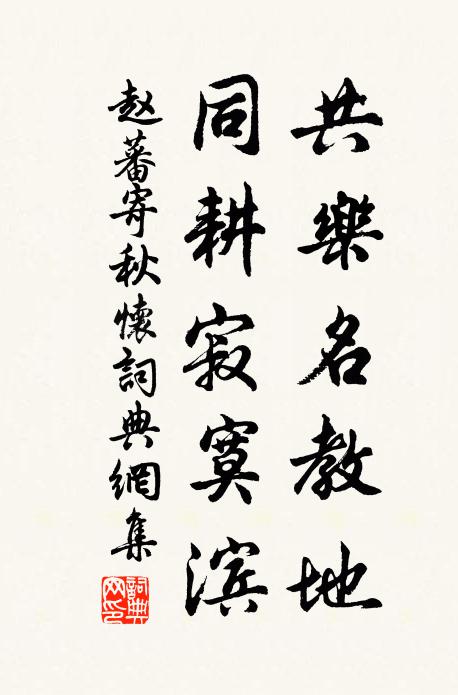 共樂名教地
同耕寂寞滨
赵蕃寄秋懷詞典網集
詞典网印